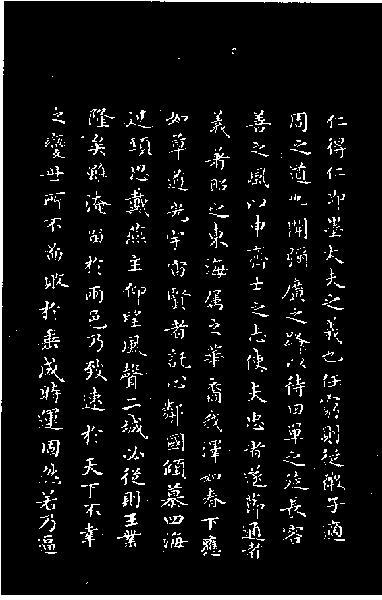 仁得仁即墨大夫之義也任窮則從微子適
周之道也開彌廣之路以待田單之徒長容
善之風以申齊士之志使夫忠者遂節通者
義著昭之東海屬之華裔我澤如春下應
如草道光宇宙賢者託心鄰國傾慕四海
延頸思戴燕主仰望風聲二城必從則王業
隆矣雖淹留於兩邑乃致速於天下不幸
之變世所不啚敗於垂成時運固然若乃逼